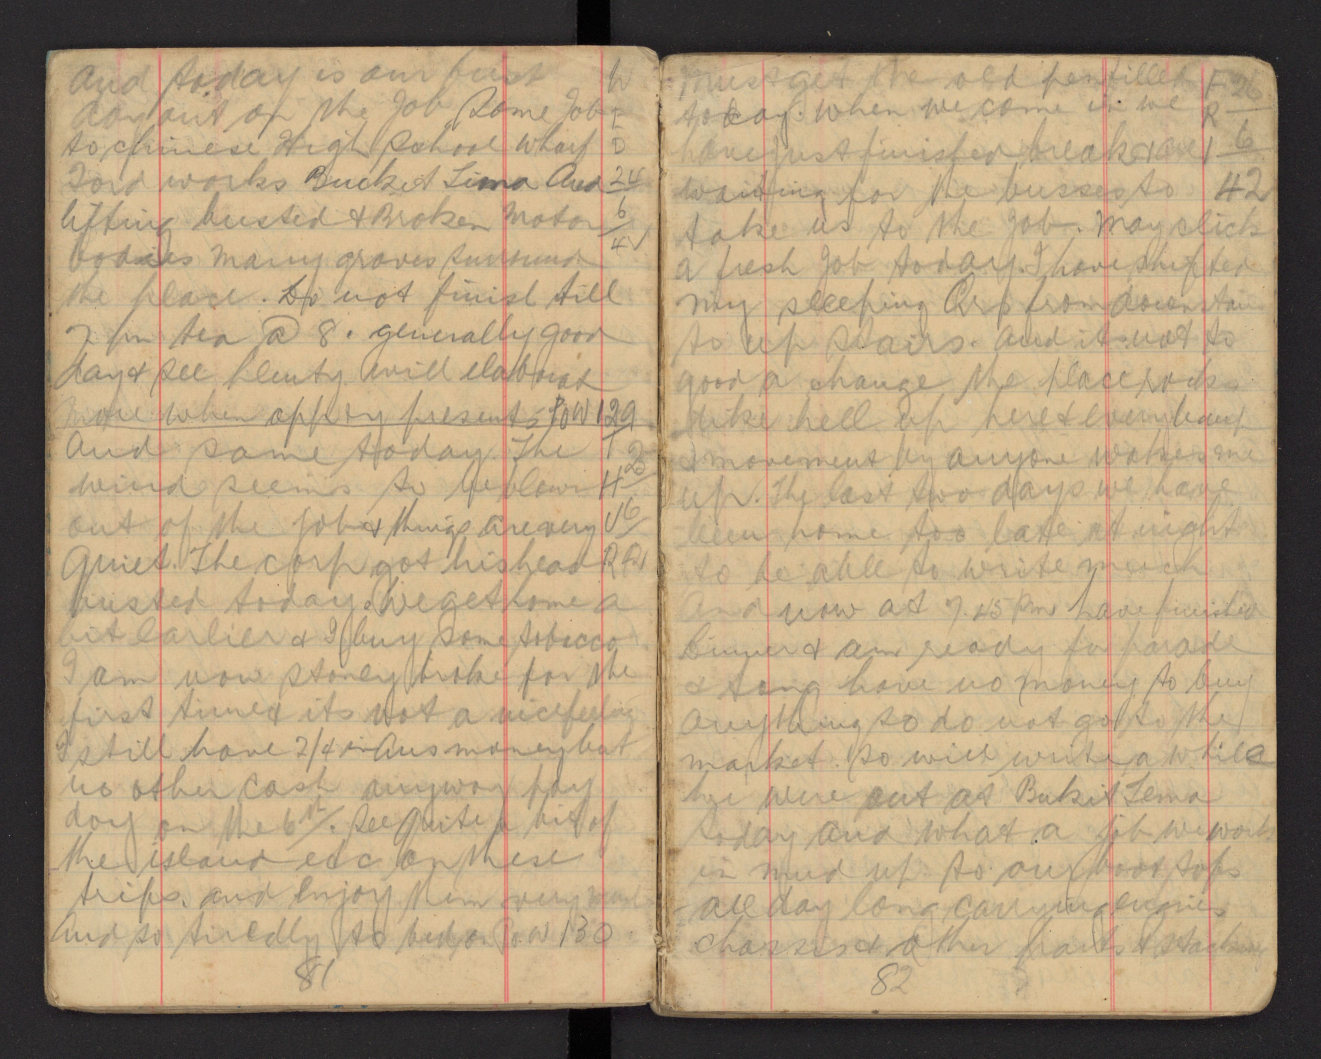 And today is our first W
day out on the Job Some Job E
to chinese High School Wharf D
Ford works Bucket Tima And 24
lifting busted & Broken Motor 6
bodies Many graves surround 42
the place. Do not finish till
7 pm tea @ 8. generally good
day & see plenty will elaborate
more when opp'ty presents POW 129
And same today. The T
wind seems to be blown H 25
out of the job & things are very U 6
quiet. The corp got his head R 42
busted today. We get home a
bit earlier & I buy some tobacco.
I am now stoney broke for the
first time & its not a nice feeling
I still have 2/4 in Aus money but
no other cash anyway pay
day on the 6th. See quite a bit of
the island etc on these
trips. and enjoy them very much
And so tiredly to bed on POW 130
81
Must get the old pen filled F 26
today. When we come in. we R
have just finished break & are I 6
waiting for the busses to 42
take us to the Job. May click
a fresh Job today. I have shifted
my sleeping from down stairs
to up stairs. And it not to
good a change the place rocks
like hell up here & every bump
& movement by anyone wakes me
up. The last two days we have
been home too late at night
to be able to write much
And now at 7.45 pm have finished
Dinner & am ready for parade
& have no money to buy
anything so do not go to the
market. So will write a while
We were out at Bukit Tema
today and what a job we work
in mud up to our boot tops
all day long carrying engines
chassis & other parts & stacking
82